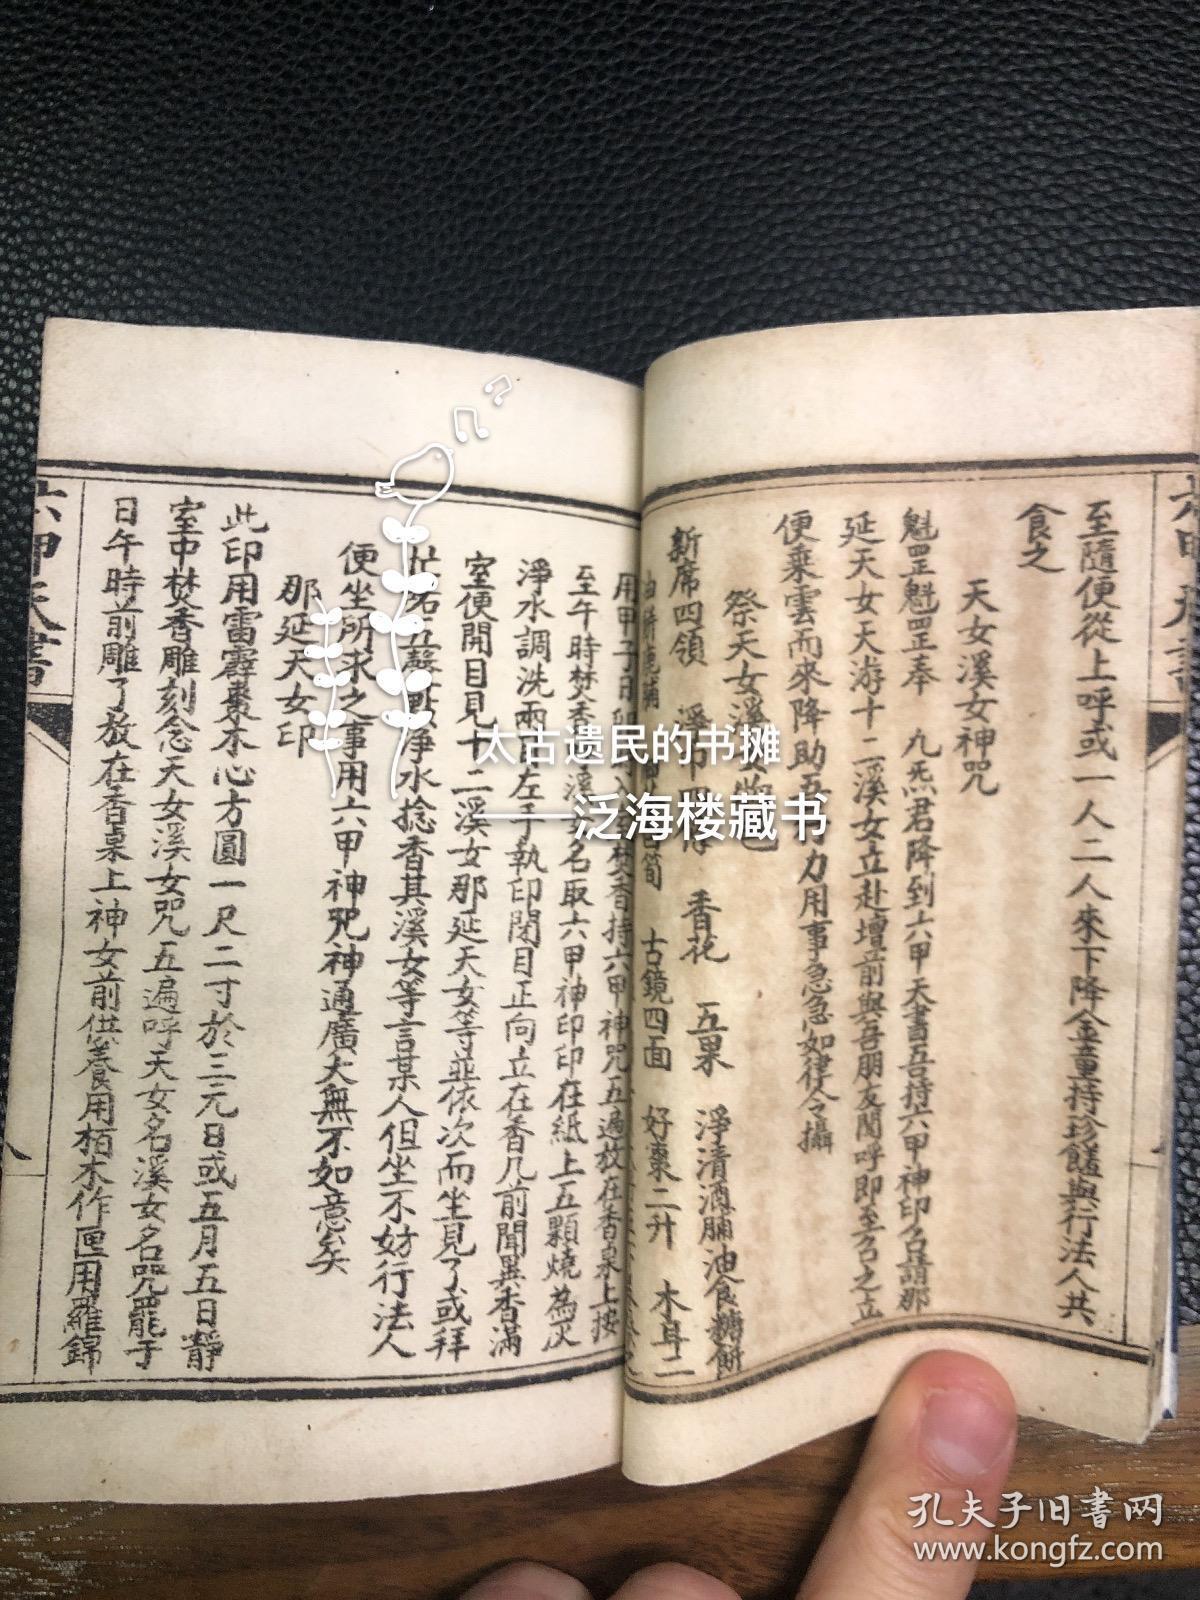 六甲天書
至隨便從上呼或一人二人來下降金童持珍饈與行法人共
食之
天女溪女神咒
魁罡魁罡正奉 九炁君降到六甲天書吾持六甲神印召請那
延天女天游十二溪女立赴壇前與吾朋友聞呼即至召之立
便乘雲而來降助吾 力用事急急如律令攝
祭天女溪
新席四領 香花 五果 淨清酒脯油食糖餅
古鏡四面 好棗二升 木耳二
用甲子日 焚香持六甲神咒五遍放在香桌上按
至午時焚香 溪 名取六甲神印印在紙上五顆燒為灰
淨水調洗兩 左手執印閉目正向立在香几前聞異香滿
室便開目見十二溪女那延天女等並依次而坐見了或拜
五 淨水捻香其溪女等言某人但坐不妨行法人
便坐所求之事用六甲神咒神通廣大無不如意矣
那延天女印
此印用雷霹棗木心方圓一尺二寸於三元日或五月五日靜
室中焚香雕刻念天女溪女咒五遍呼天女名溪女名咒罷于
日午時前雕了放在香桌上神女前供養用栢木作匣用羅錦
六甲天書
太古遗民的书摊
——泛海楼藏书
孔夫子旧书网
www.kongfz.com